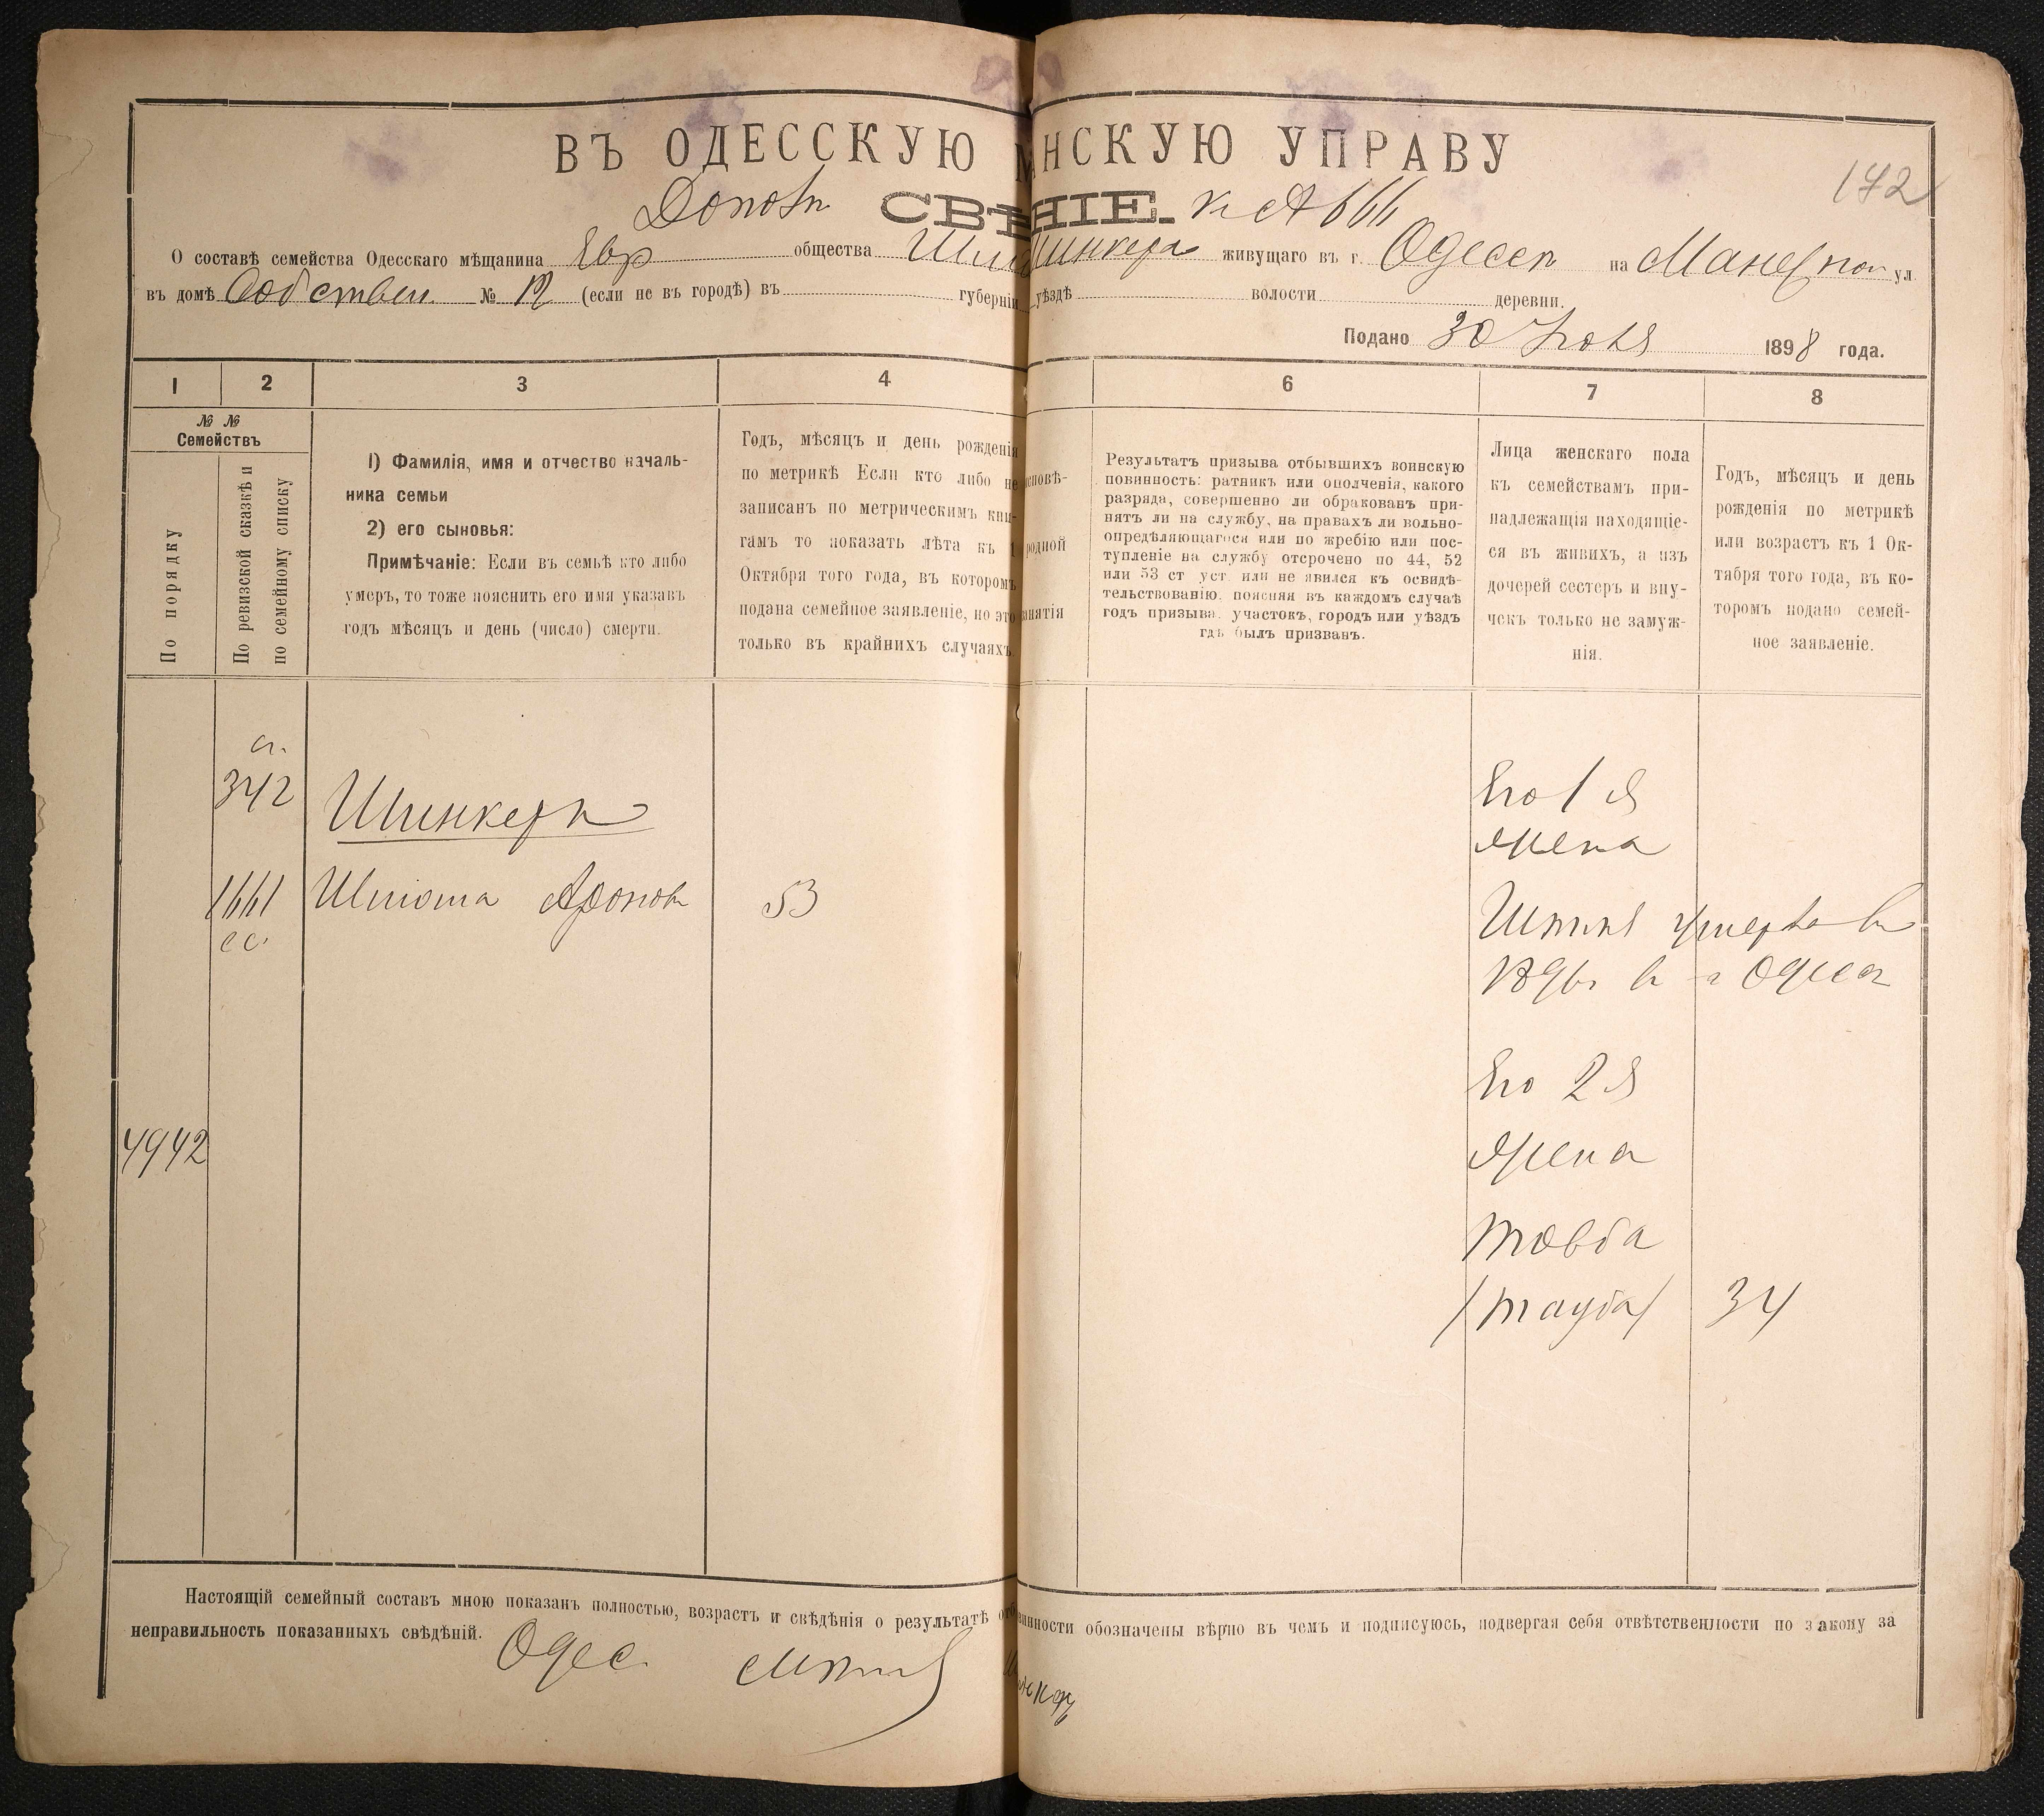 ВЪ ОДЕССКУЮ М НСКУЮ УПРАВУ
142
СВѢ НІЕ. к
О составѣ семейства Одесскаго мѣщанина Евр общества Шинкера живущаго въ г. Одессѣ на ул.
въ домѣ Собствен № (если не въ городѣ) въ губерніи уѣздѣ волости деревни.
Подано 30 1898 года.
1 2 3 4 6 7 8
№ №
Семействъ
По порядку
По ревизской сказкѣ и
по семейному списку
1) Фамилія, имя и отчество началь-
ника семьи
2) его сыновья:
Примѣчаніе: Если въ семьѣ кто либо
умеръ, то тоже пояснить его имя указавъ
годъ мѣсяцъ и день (число) смерти.
Годъ, мѣсяцъ и день рожденія
по метрикѣ Если кто либо не
записанъ по метрическимъ кни-
гамъ то показать лѣта къ 1
Октября того года, въ которомъ
подана семейное заявленіе, но это
только въ крайнихъ случаяхъ.
сповѣ-
родной
анятія
Результатъ призыва отбывшихъ воинскую
повинность: ратникъ или ополченія, какого
разряда, совершенно ли обракованъ при-
нятъ ли на службу, на правахъ ли вольно-
опредѣляющагося или по жребію или пос-
тупленіе на службу отсрочено по 44, 52
или 53 ст уст. или не явился къ освидѣ-
тельствованію, поясняя въ каждомъ случаѣ
годъ призыва, участокъ, городъ или уѣздъ
гдѣ былъ призванъ.
Лица женскаго пола
къ семействамъ при-
надлежащія находящіе-
ся въ живихъ, а изъ
дочерей сестеръ и вну-
чекъ только не замуж-
нія.
Годъ, мѣсяцъ и день
рожденія по метрикѣ
или возрастъ къ 1 Ок-
тября того года, въ ко-
торомъ подано семей-
ное заявленіе.
342
Шинкеръ
Его 1 я
жена
1661
сс.
Шлиома Аронов
53
умерла в
в г Одессѣ
Его 2 я
4942
жена
Товба
/Тауба/
34
Настоящій семейный составъ мною показанъ полностью, возрастъ и свѣдѣнія о результатѣ отб инности обозначены вѣрно въ чемъ и подписуюсь, подвергая себя отвѣтственности по закону за
неправильность показанныхъ свѣдѣній. Одес.